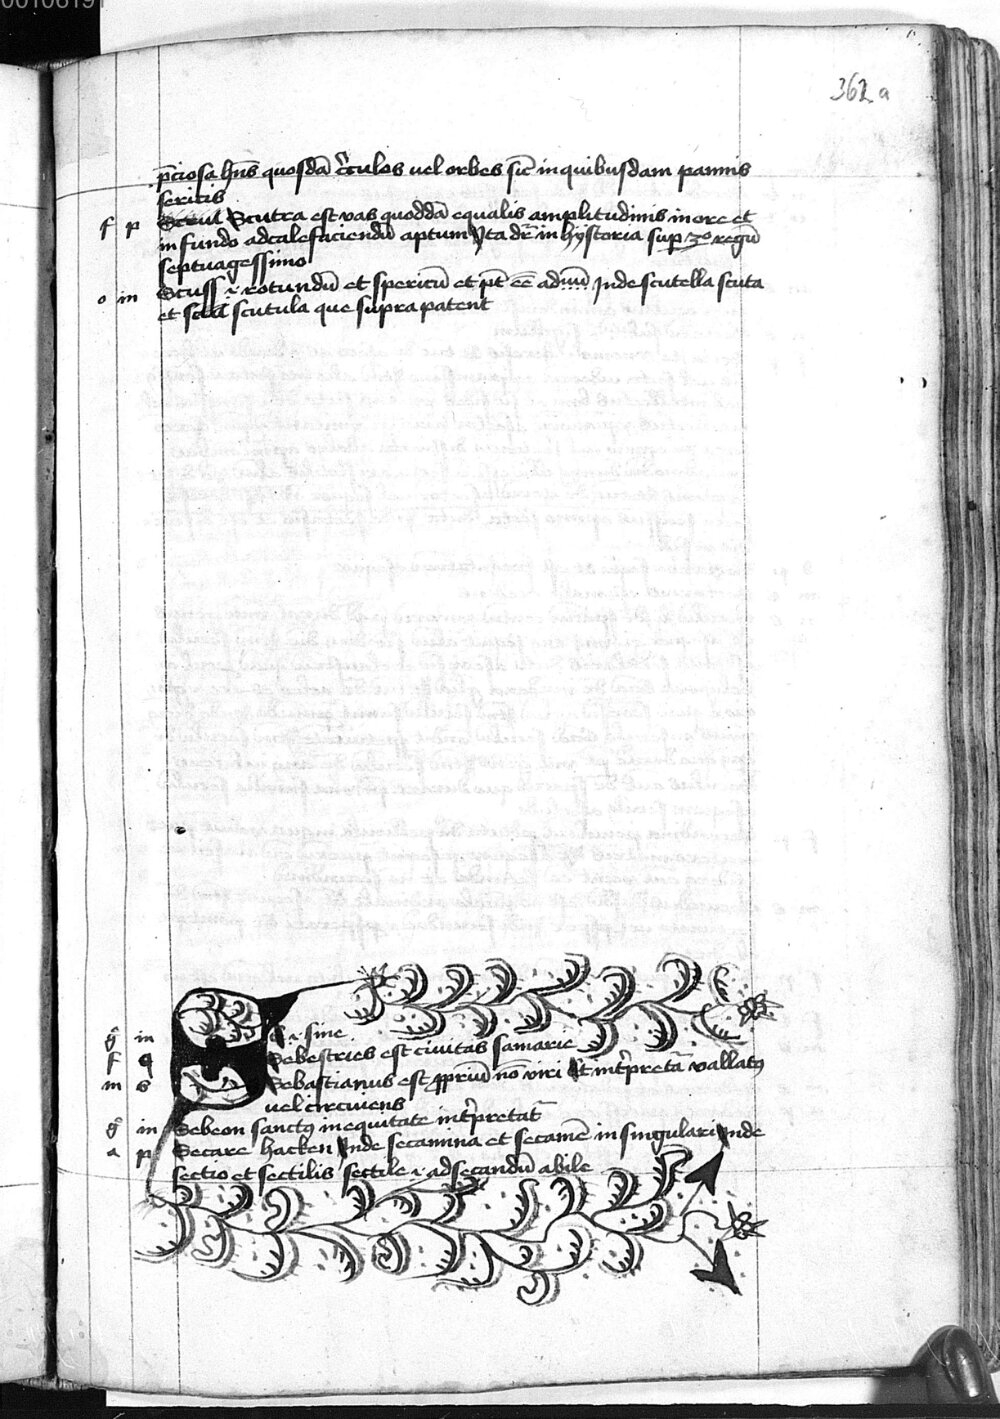 00106191
362 a
p̄ciosa hn̄s quosdā c̄culos uel orbes sic̄ in quibusdam pannis
sericis
f p Scutra est vas quoddā equalis amplitudinis in ore et
in fundo ad calefaciendū aptum vt a dr̄ in hystoria sup 3º regū
septuagessimo
o in Scuss ē rotundū et spericū et pt̄ eē Inde scutella scuta
et scutula que supra patent
g in ē sine
f q Sebestries est ciuitas samarie
m s Sebastianus est pprīū nō viri Et int̄pretā vallatꝯ
uel circuiens
g in Sebeon sanctꝯ in equitate int̄pretat̄
a p Secare hacken Inde secamina et secamē in singulari Inde
sectio et sectilis sectile ē ad secandū abile